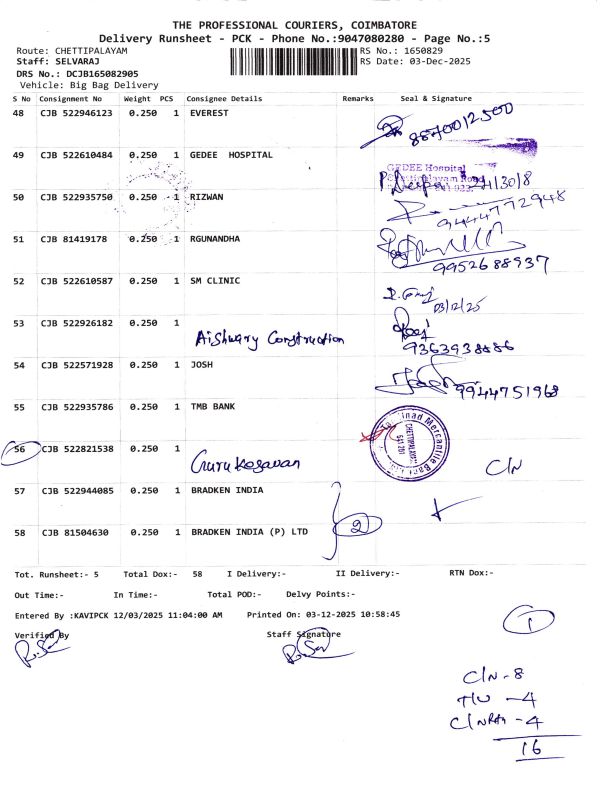 THE PROFESSIONAL COURIERS, COIMBATORE
Delivery Runsheet - PCK - Phone No.:9047080280 - Page No.:5
Route: CHETTIPALAYAM RS No.: 1650829
Staff: SELVARAJ RS Date: 03-Dec-2025
DRS No.: DCJB165082905
Vehicle: Big Bag Delivery
S No Consignment No Weight PCS Consignee Details Remarks Seal & Signature
48 CJB 522946123 0.250 1 EVEREST
49 CJB 522610484 0.250 1 GEDEE HOSPITAL
GEDEE Hospital
50 CJB 522935750 0.250 1 RIZWAN
9444772948
51 CJB 81419178 0.250 1 RGUNANDHA
9952688937
52 CJB 522610587 0.250 1 SM CLINIC
03/12/25
53 CJB 522926182 0.250 1 Aishwary Construction
9363938886
54 CJB 522571928 0.250 1 JOSH 9944751968
55 CJB 522935786 0.250 1 TMB BANK
56 CJB 522821538 0.250 1 Gurukesavan C/N
57 CJB 522944085 0.250 1 BRADKEN INDIA
2
58 CJB 81504630 0.250 1 BRADKEN INDIA (P) LTD
Tot. Runsheet:- 5 Total Dox:- 58 I Delivery:- II Delivery:- RTN Dox:-
Out Time:- In Time:- Total POD:- Delvy Points:-
Entered By :KAVIPCK 12/03/2025 11:04:00 AM Printed On: 03-12-2025 10:58:45
1
Verified By Staff Signature
C/N - 8
- 4
- 4
16